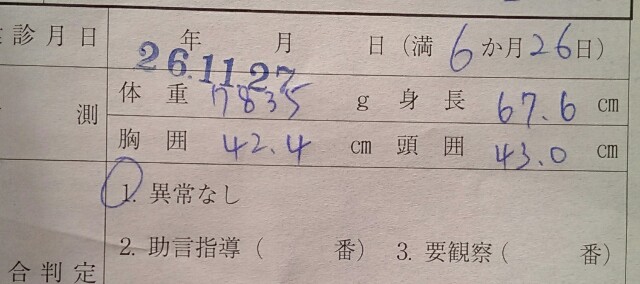 診月日 年 月 日 (満 6 か月 26日)
26.11.27
測 体重 7835 g 身長 67.6 cm
胸囲 42.4 cm 頭囲 43.0 cm
1. 異常なし
2. 助言指導 ( 番) 3. 要観察 ( 番)
合判定